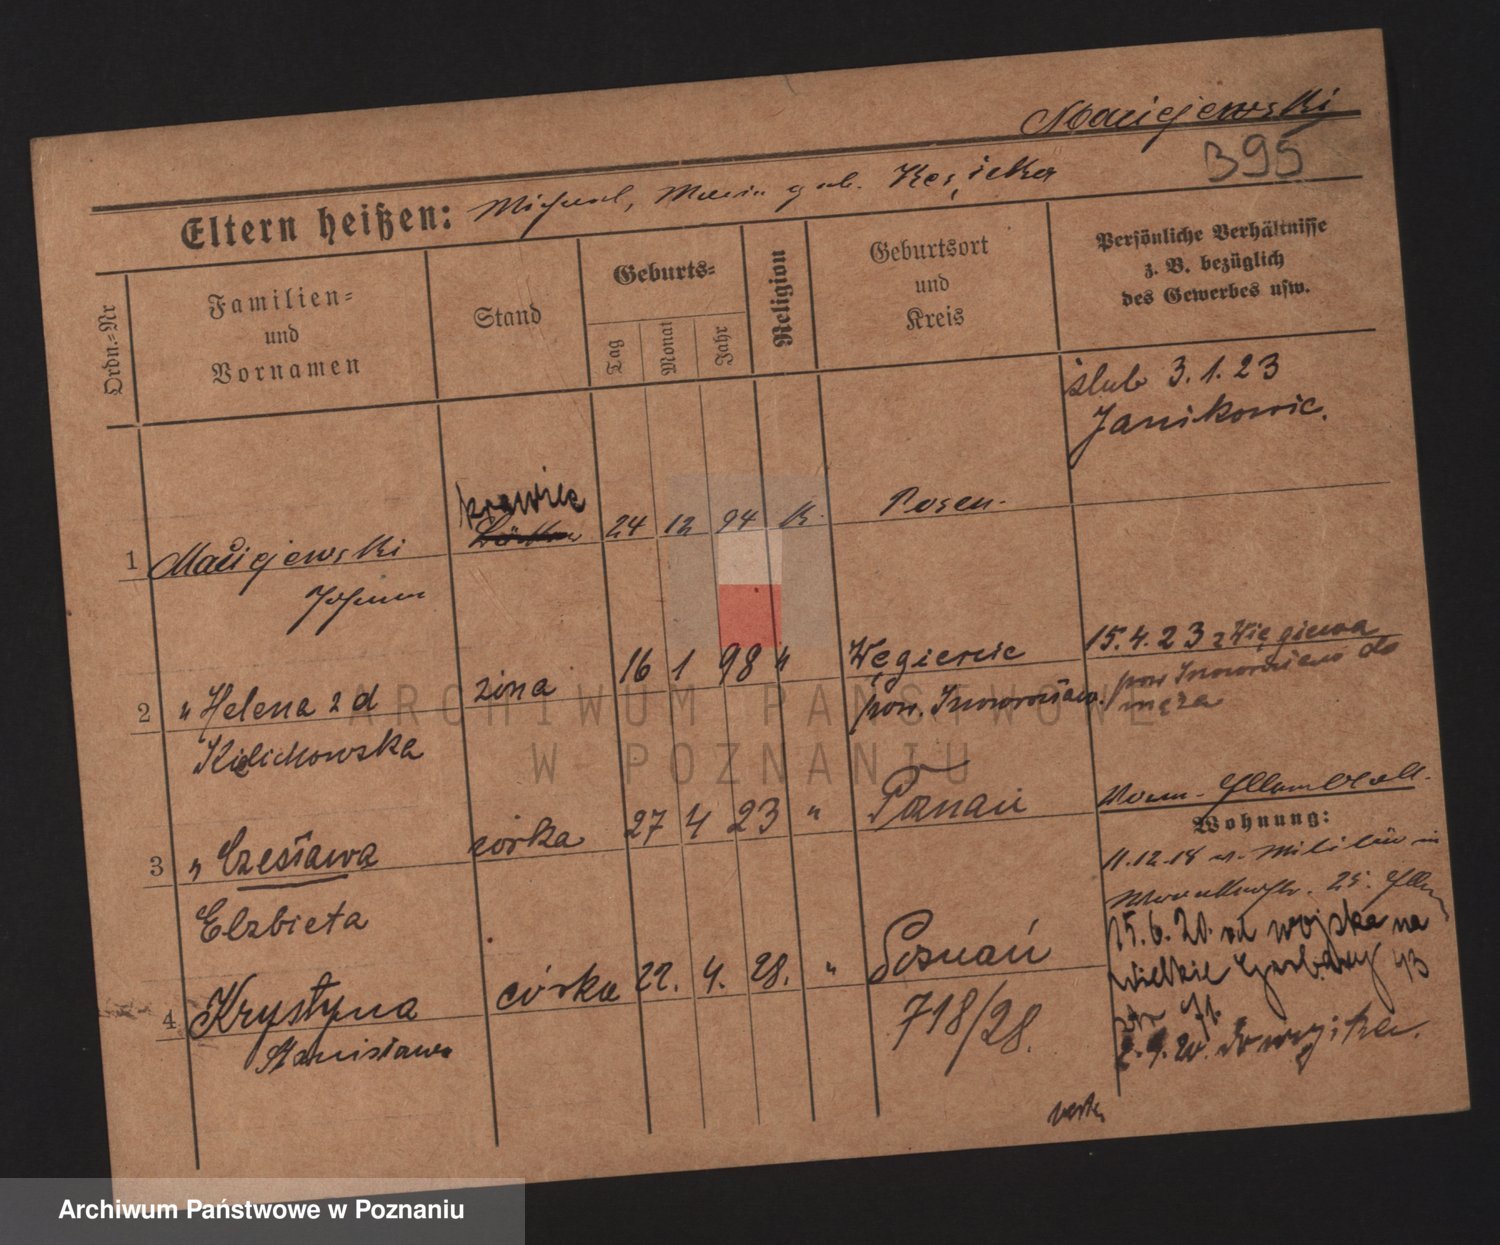 Maciejewski
B95
Eltern heißen: Michael, Maria geb. Kosicka
Ordn.-Nr
Familien=
und
Vornamen
Stand
Geburts=
Tag
Monat
Jahr
Religion
Geburtsort
und
Kreis
Persönliche Verhältnisse
z. B. bezüglich
des Gewerbes usw.
ślub 3.1.23
Janikowie.
krawiec
1 Maciejewski 24 12 94 k. Posen.
Johann
2 " Helena z d żona 16 1 98 " Węgierce
pow. Inowrocław.
15.4.23 z Węgierca
pow Inowrocław do
męża
3 " Czesława córka 27 4 23 " Poznań
Elżbieta
4 Krystyna córka 22. 4. 28. " Poznań
Stanisława
718/28.
Wohnung:
11.12.18 v. Militär in
25.
15.6.20. od wojska na
Wielkie Garbary 43
2.9.20. do wojska.
ARCHIWUM PAŃSTWOWE
W POZNANIU
Archiwum Państwowe w Poznaniu